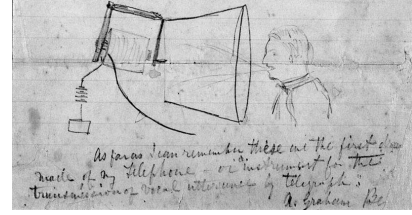 As far as I can remember these are the first
made of my telephone or "instrument for the
transmission of vocal utterance by telegraph".
A. Graham Be